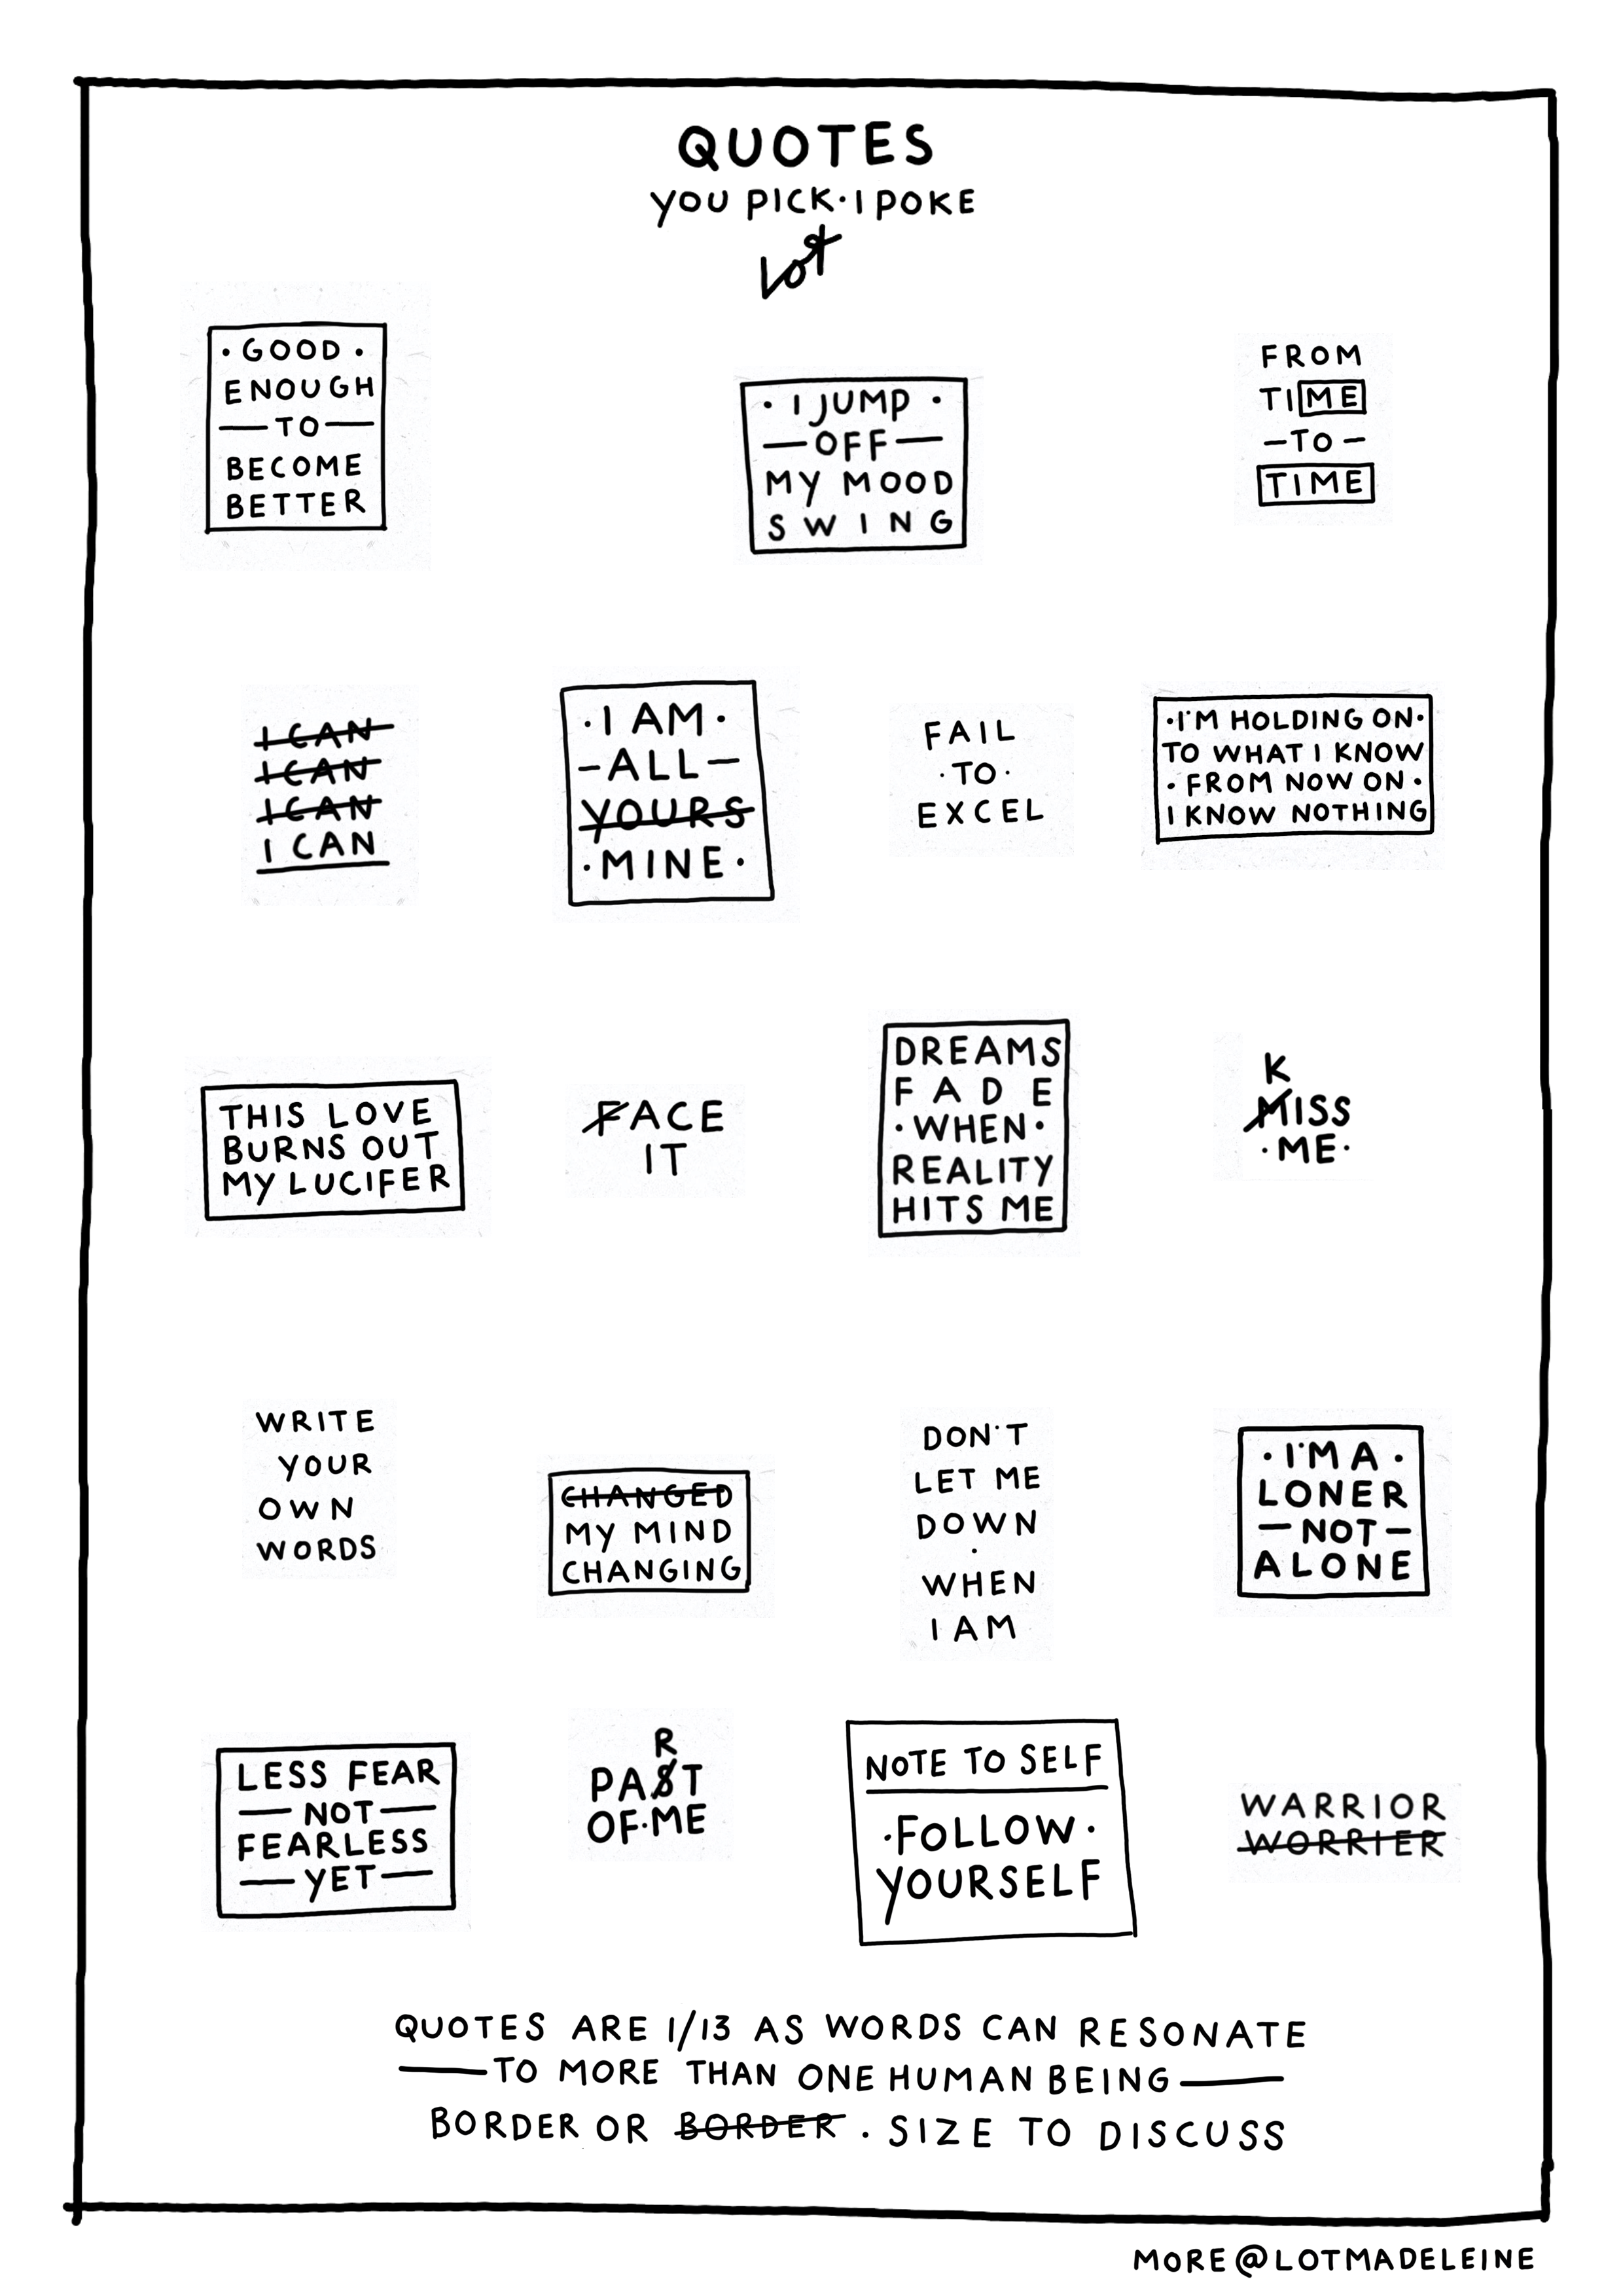 QUOTES
YOU PICK·I POKE
Lot
·GOOD·
ENOUGH
—TO—
BECOME
BETTER
·I JUMP·
—OFF—
MY MOOD
SWING
FROM
TIME
—TO—
TIME
I CAN
I CAN
I CAN
I CAN
·I AM·
—ALL—
YOURS
·MINE·
FAIL
·TO·
EXCEL
·I'M HOLDING ON·
TO WHAT I KNOW
·FROM NOW ON·
I KNOW NOTHING
THIS LOVE
BURNS OUT
MY LUCIFER
FACE
IT
DREAMS
FADE
·WHEN·
REALITY
HITS ME
K
MISS
·ME·
WRITE
YOUR
OWN
WORDS
CHANGED
MY MIND
CHANGING
DON'T
LET ME
DOWN
·
WHEN
I AM
·I'M A·
LONER
—NOT—
ALONE
LESS FEAR
—NOT—
FEARLESS
—YET—
R
PAST
OF·ME
NOTE TO SELF
·FOLLOW·
YOURSELF
WARRIOR
WORRIER
QUOTES ARE 1/13 AS WORDS CAN RESONATE
—TO MORE THAN ONE HUMAN BEING—
BORDER OR BORDER . SIZE TO DISCUSS
MORE @LOTMADELEINE